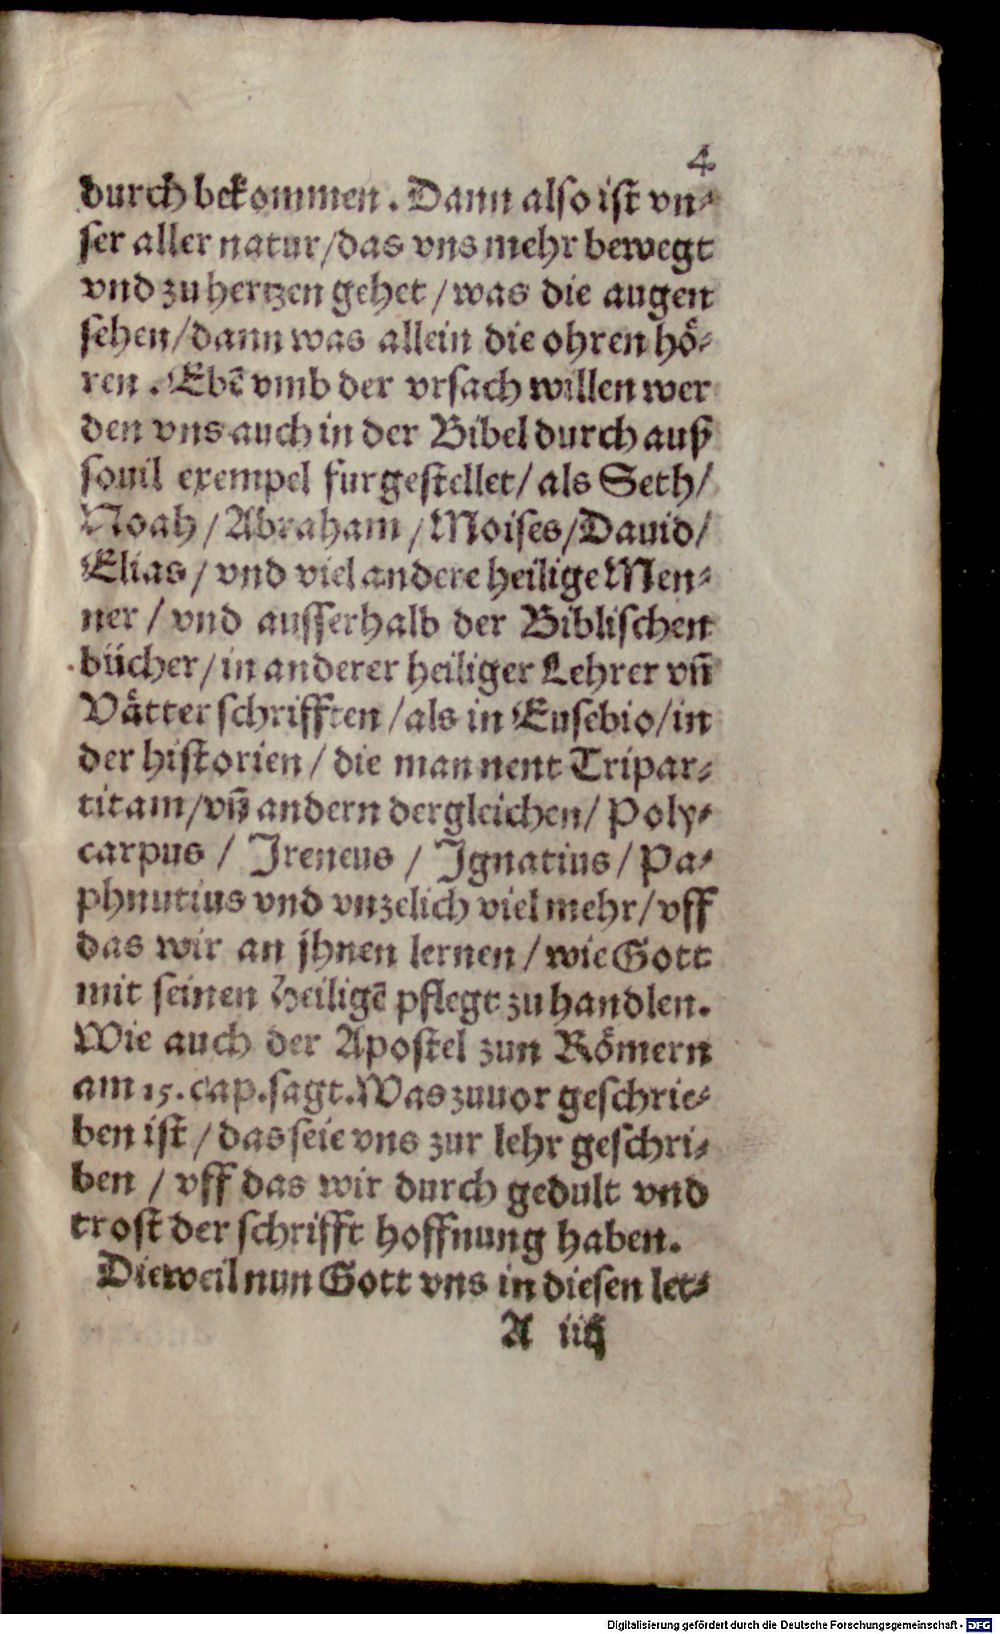 4
durch bekommen. Dann also ist vn-
ser aller natur/das vns mehr bewegt
vnd zu hertzen gehet/was die augen
sehen/dann was allein die ohren hö-
ren. Ebẽ vmb der vrsach willen wer
den vns auch in der Bibel durch auß
souil exempel furgestellet/als Seth/
Noah/Abraham/Moises/Dauid/
Elias/vnd viel andere heilige Men-
ner/vnd ausserhalb der Biblischen
bücher/in anderer heiliger Lehrer vñ
Vätter schrifften/als in Eusebio/in
der historien/die man nent Tripar-
titam/vñ andern dergleichen/Poly-
carpus/Jreneus/Jgnatius/Pa-
phnutius vnd vnzelich viel mehr/vff
das wir an jhnen lernen/wie Gott
mit seinen heiligẽ pflegt zu handlen.
Wie auch der Apostel zun Römern
am 15. cap. sagt. Was zuuor geschrie-
ben ist/das seie vns zur lehr geschri-
ben/vff das wir durch gedult vnd
trost der schrifft hoffnung haben.
Dieweil nun Gott vns in diesen let-
A iiij
Digitalisierung gefördert durch die Deutsche Forschungsgemeinschaft - DFG